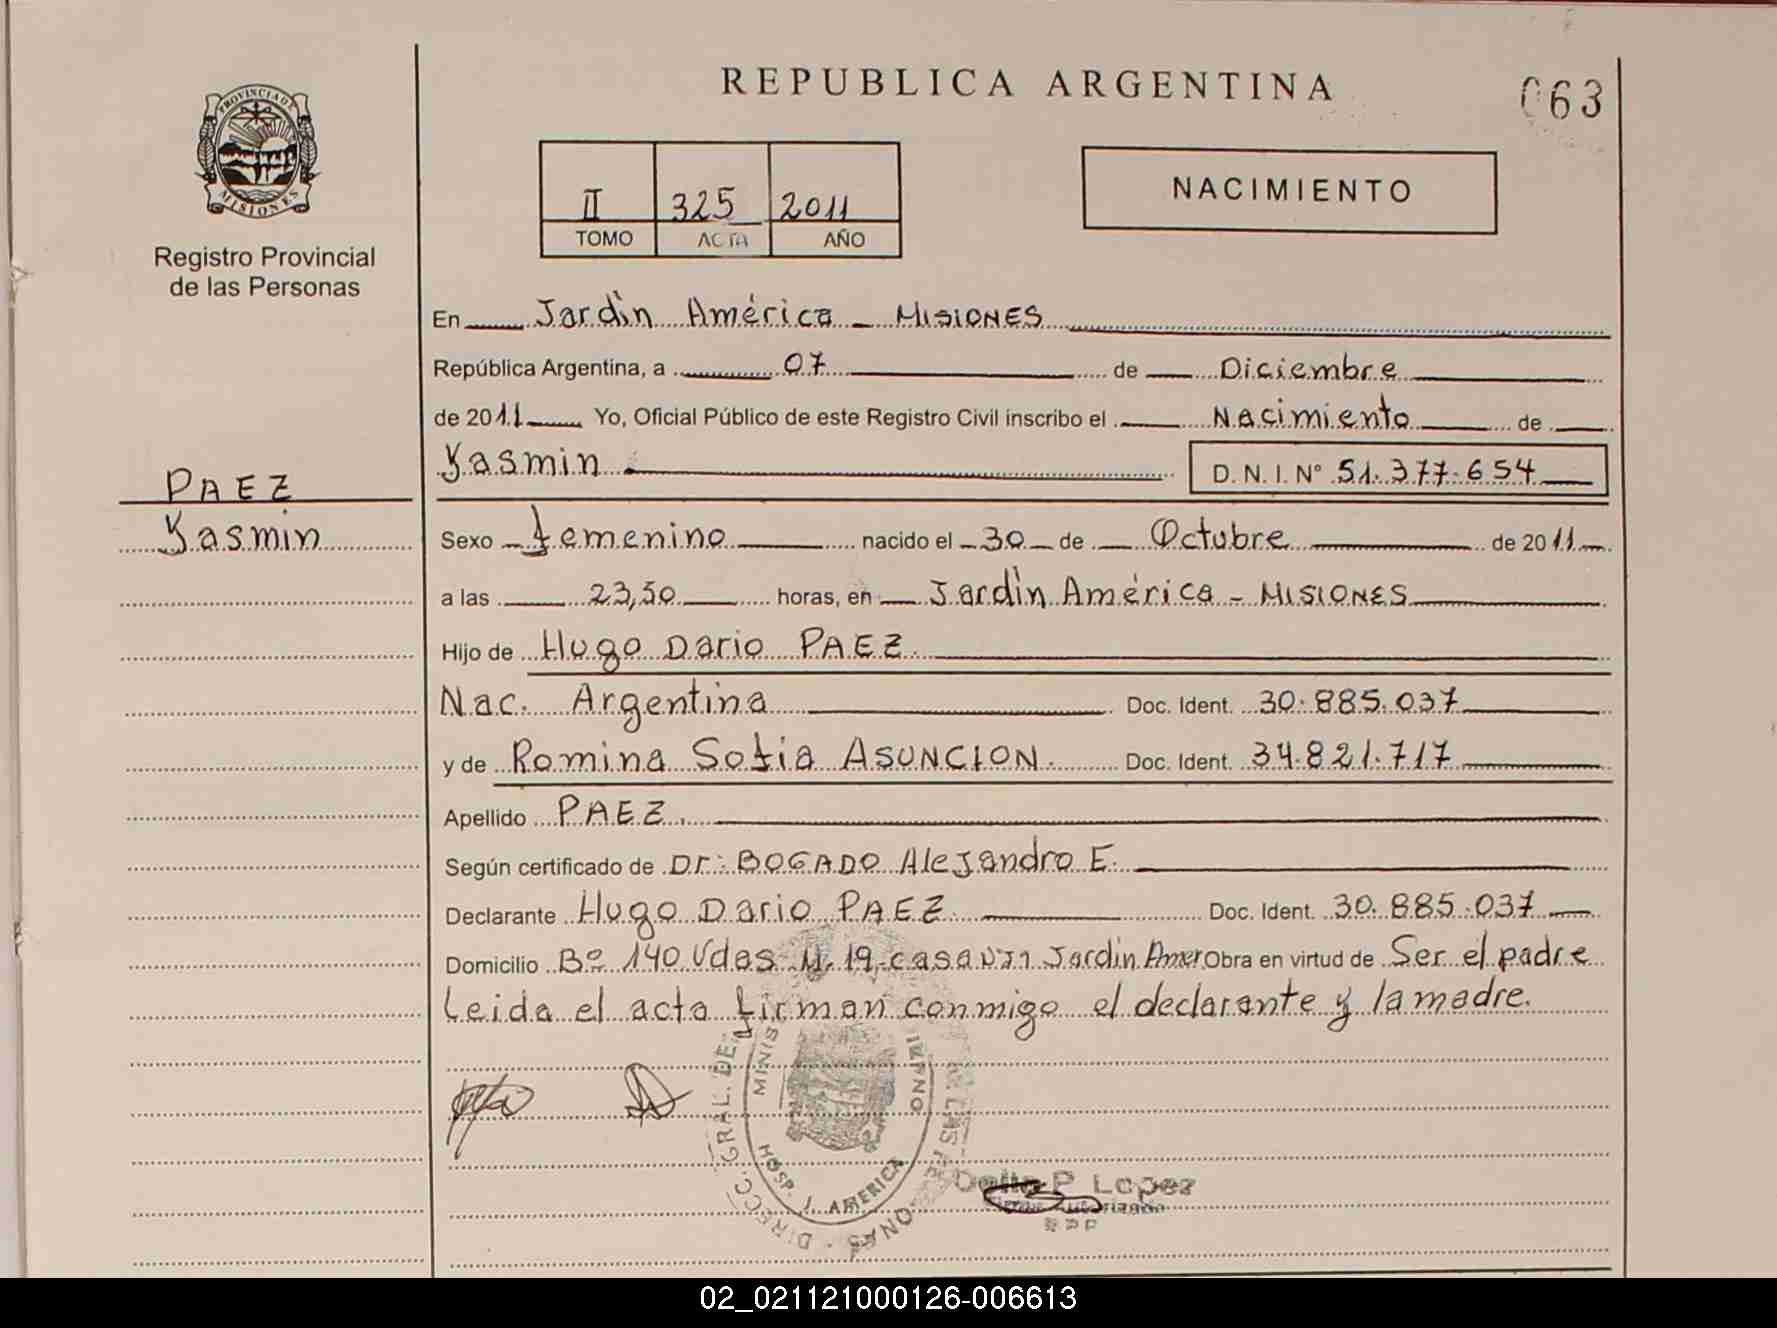 REPUBLICA ARGENTINA
063
PROVINCIA DE
MISIONES
Registro Provincial
de las Personas
II 325 2011
TOMO ACTA AÑO
NACIMIENTO
En Jardín América - MISIONES
República Argentina, a 07 de Diciembre
de 2011 Yo, Oficial Público de este Registro Civil inscribo el Nacimiento de
Yasmin D. N. I. N° 51.377.654
PAEZ
Yasmin
Sexo femenino nacido el 30 de Octubre de 2011
a las 23,50 horas, en Jardín América - MISIONES
Hijo de Hugo Dario PAEZ.
Nac. Argentina Doc. Ident. 30.885.037
y de Romina Sofia ASUNCION. Doc. Ident. 34.821.717
Apellido PAEZ.
Según certificado de Dr: BOGADO Alejandro E.
Declarante Hugo Dario PAEZ. Doc. Ident. 30.885.037
Domicilio Bº 140 Vdas M. 19 casa Jardin Amer Obra en virtud de Ser el padre
Leida el acta firman conmigo el declarante y la madre.
DIRECC. GRAL. DE LAS
MINIS
HOSP. J. AMERICA
P. Lopez
RPP
02_021121000126-006613